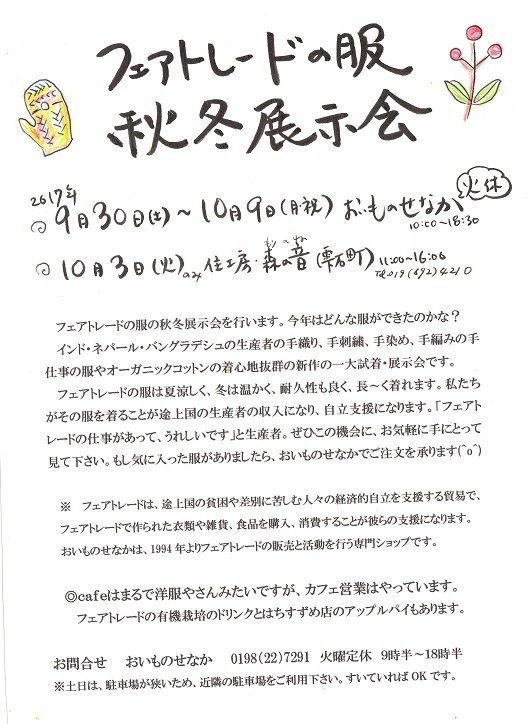 フェアトレードの服
秋冬展示会
2017年
◎9月30日(土)～10月9日(月・祝) おいものせなか 火休
10:00～18:30
もりのね
◎10月3日(火)のみ 住工房・森の音(雫石町) 11:00～16:00
TEL019(692)4210
フェアトレードの服の秋冬展示会を行います。今年はどんな服ができたのかな？
インド・ネパール・バングラデシュの生産者の手織り、手刺繍、手染め、手編みの手
仕事の服やオーガニックコットンの着心地抜群の新作の一大試着・展示会です。
フェアトレードの服は夏涼しく、冬は温かく、耐久性も良く、長～く着れます。私たち
がその服を着ることが途上国の生産者の収入になり、自立支援になります。「フェアト
レードの仕事があって、うれしいです」と生産者。ぜひこの機会に、お気軽に手にとって
見て下さい。もし気に入った服がありましたら、おいものせなかでご注文を承ります(^o^)
※ フェアトレードは、途上国の貧困や差別に苦しむ人々の経済的自立を支援する貿易で、
フェアトレードで作られた衣類や雑貨、食品を購入、消費することが彼らの支援になります。
おいものせなかは、1994年よりフェアトレードの販売と活動を行う専門ショップです。
◎cafeはまるで洋服やさんみたいですが、カフェ営業はやっています。
フェアトレードの有機栽培のドリンクとはちすずめ店のアップルパイもあります。
お問合せ おいものせなか 0198(22)7291 火曜定休 9時半～18時半
※土日は、駐車場が狭いため、近隣の駐車場をご利用下さい。すいていればOKです。